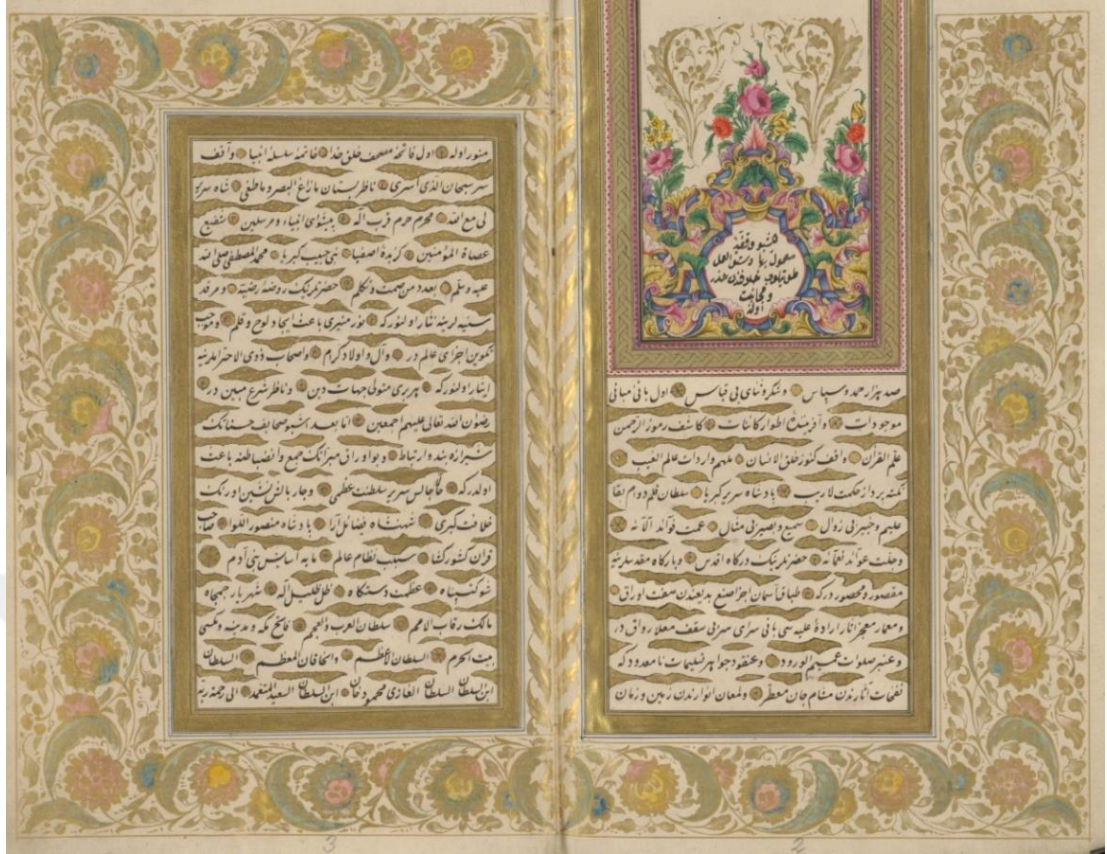 صد هزار حمد و سپاس و شکر و ثنای بی قیاس اول بانی مبانی
موجودات و آفرینندهٔ اطوار کائنات کاشف رموز الرحمن
علم القرآن واقف کنوز خلق الانسان ملهم واردات عالم الغیب
نکته پرداز حکمت لاریب پادشاه سریر کبریا سلطان قلمدوام بقا
علیم و خبیر بی زوال سمیع و بصیر بی مثال عمت فوائد آلائه
وجلت عوائد نعمائه حضرتلرینک درکاه اقدس و بارکاه مقدسلرینه
مقصور و محصور درکه طباق آسمان اجزا صنع بدیعندن اوراق
و معمار معجز آثار ارادهٔ علیه سی بانی سرای سر بی سقف معلا رواق در
و عنبر صلوات عمیم الورود و عنقود جواهر تسلیمات نامعدود که
نفحات آثارندن مشام جان معطر و لمعان انوارندن زمین و زمان
منور اوله اول فاتحهٔ مصحف خلق خدا خاتمهٔ سلسلهٔ انبیا واقف
سر سبحان الذی اسری ناظر بستان مازاغ البصر وماطغی شاه سریر
لی مع الله محرم حرم قرب اله پیشوای انبیاء و مرسلین شفیع
عصاة المؤمنین کزیدهٔ اصفیا نبی حبیب کبریا محمد المصطفی صلی الله
علیه وسلم بعدد من صمت وتکلم حضرتلرینک روضهٔ رضیه و مرقد
سنیه لرینه نثار اولنور که نور منیری باعث ایجاد لوح و قلم و موجب
تکوین اجزای عالم در و آل و اولاد کرام و اصحاب ذوی الاحترامدینه
ایثار اولنور که هر بری متولی جهات دین و ناظر شرع مبین در
رضوان الله تعالی علیهم اجمعین اما بعد اشبو صحایف حسناتک
شیرازه بند و ارتباط و بو اوراق مبراتک جمع و انضباطنه باعث
اولدر که جالس سریر سلطنت عظمی و چار بالش نشین اورنک
خلافت کبری شهنشاه فضائل آرا پادشاه منصور اللوا صاحب
قران کشورکشا سبب نظام عالم مایه آسایش بنی آدم
شوکتپناه عظمت دستکاه ظل ظلیل اله شهریار جمجاه
مالک رقاب الامم سلطان العرب والعجم فاتح مکه و مدینه و
بیت الحرم السلطان الاعظم والخاقان المعظم السلطان
ابن السلطان السلطان الغازی محمود خان ابن السلطان السعید
3
2